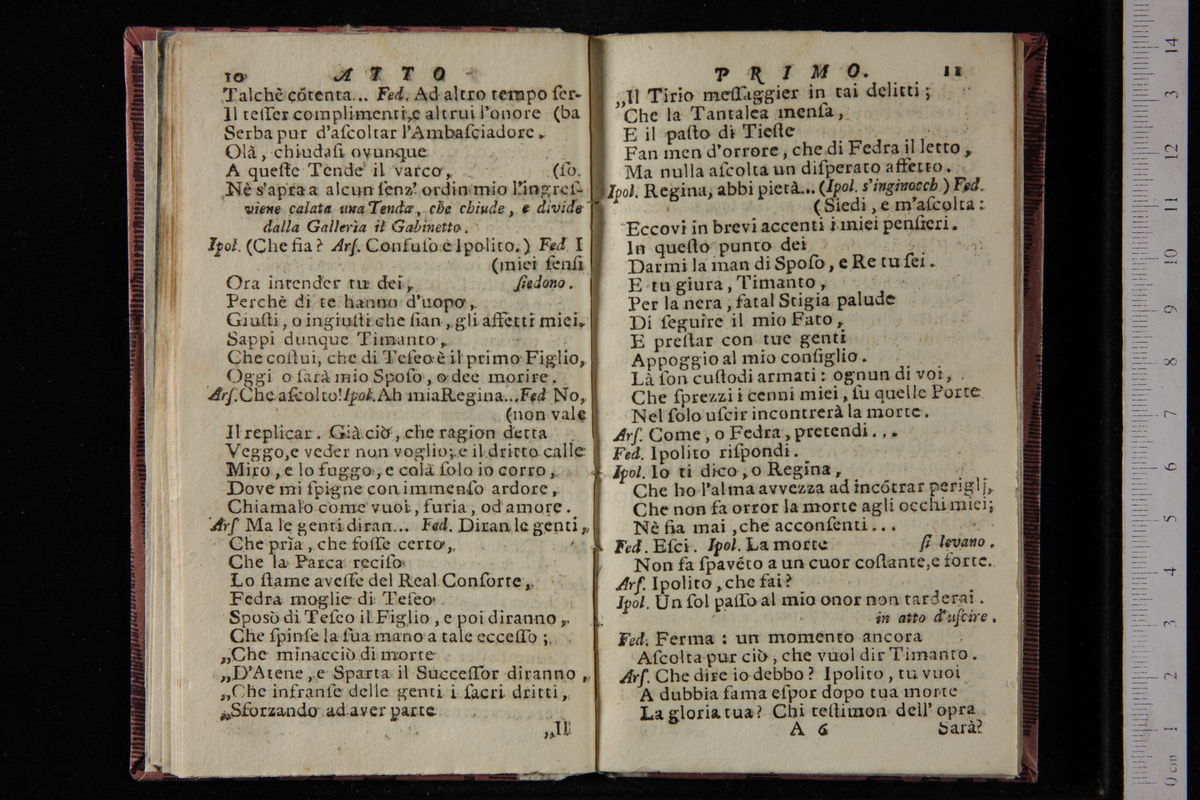 10 ATTO
Talchè cõtenta... Fed. Ad altro tempo ſer-
Il teſſer complimenti, e altrui l'onore (ba
Serba pur d'aſcoltar l'Ambaſciadore.
Olà, chiudaſi ovunque
A queſte Tende il varco, (ſo.
Nè s'apra a alcun ſenz' ordin mio l'ingreſ-
viene calata una Tenda, che chiude, e divide
dalla Galleria il Gabinetto.
Ipol. (Che fia? Arſ. Confuſo è Ipolito.) Fed. I
(miei ſenſi
Ora intender tu dei, ſiedono.
Perchè di te hanno d'uopo,
Giuſti, o ingiuſti che ſian, gli affetti miei.
Sappi dunque Timanto,
Che coſtui, che di Teſeo è il primo Figlio,
Oggi o ſarà mio Spoſo, o dee morire.
Arſ. Che aſcolto! Ipol. Ah mia Regina... Fed No,
(non vale
Il replicar. Già ciò, che ragion detta
Veggo, e veder non voglio; e il dritto calle
Miro, e lo fuggo, e colà ſolo io corro,
Dove mi ſpigne con immenſo ardore,
Chiamalo come vuoi, furia, od amore.
Arſ Ma le genti diran... Fed. Diran le genti,
Che pria, che foſſe certo,
Che la Parca reciſo
Lo ſtame aveſſe del Real Conſorte,
Fedra moglie di Teſeo
Sposò di Teſeo il Figlio, e poi diranno,
Che ſpinſe la ſua mano a tale ecceſſo;
„Che minacciò di morte
„D'Atene, e Sparta il Succeſſor diranno,
„Che infranſe delle genti i ſacri dritti,
„Sforzando ad aver parte
„Il
PRIMO. 11
„Il Tirio meſſaggier in tai delitti;
„Che la Tantalea menſa,
E il paſto di Tieſte
Fan men d'orrore, che di Fedra il letto,
Ma nulla aſcolta un diſperato affetto.
Ipol. Regina, abbi pietà... (Ipol. s'inginocch.) Fed.
(Siedi, e m'aſcolta:
Eccovi in brevi accenti i miei penſieri.
In queſto punto dei
Darmi la man di Spoſo, e Re tu ſei.
E tu giura, Timanto,
Per la nera, fatal Stigia palude
Di ſeguire il mio Fato,
E preſtar con tue genti
Appoggio al mio conſiglio.
Là ſon cuſtodi armati: ognun di voi,
Che ſprezzi i cenni miei, ſu quelle Porte
Nel ſolo uſcir incontrerà la morte.
Arſ. Come, o Fedra, pretendi...
Fed. Ipolito riſpondi.
Ipol. Io ti dico, o Regina,
Che ho l'alma avvezza ad incõtrar periglj,
Che non fa orror la morte agli occhi miei;
Nè fia mai, che acconſenti...
Fed. Eſci. Ipol. La morte ſi levano.
Non fa ſpavẽto a un cuor coſtante, e forte.
Arſ. Ipolito, che fai?
Ipol. Un ſol paſſo al mio onor non tarderai.
in atto d'uſcire.
Fed. Ferma: un momento ancora
Aſcolta pur ciò, che vuol dir Timanto.
Arſ. Che dire io debbo? Ipolito, tu vuoi
A dubbia fama eſpor dopo tua morte
La gloria tua? Chi teſtimon dell' opra
A 6 Sarà?
0 cm 1 2 3 4 5 6 7 8 9 10 11 12 13 14